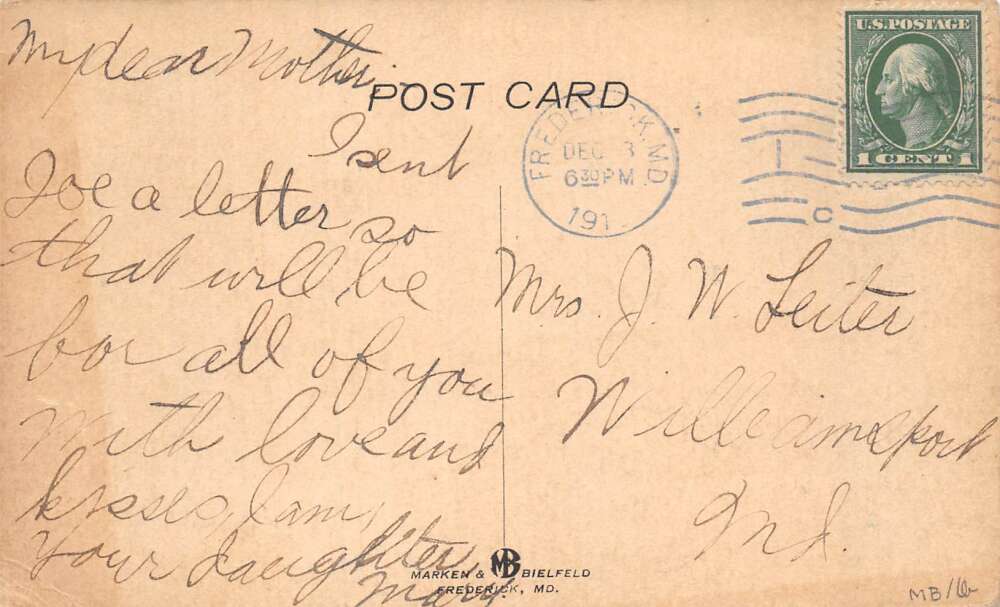 My dear Mother,
POST CARD
I sent
Joe a letter so
that will be
for all of you
with love and
kisses, I am,
Your Daughter
Mary.
U.S. POSTAGE
1 CENT 1
FREDERICK, MD.
DEC 3
6 30 PM
191
C
Mrs. J. W. Leiter
Williamsport
Md.
MARKEN & MB BIELFELD
FREDERICK, MD.
MB/16